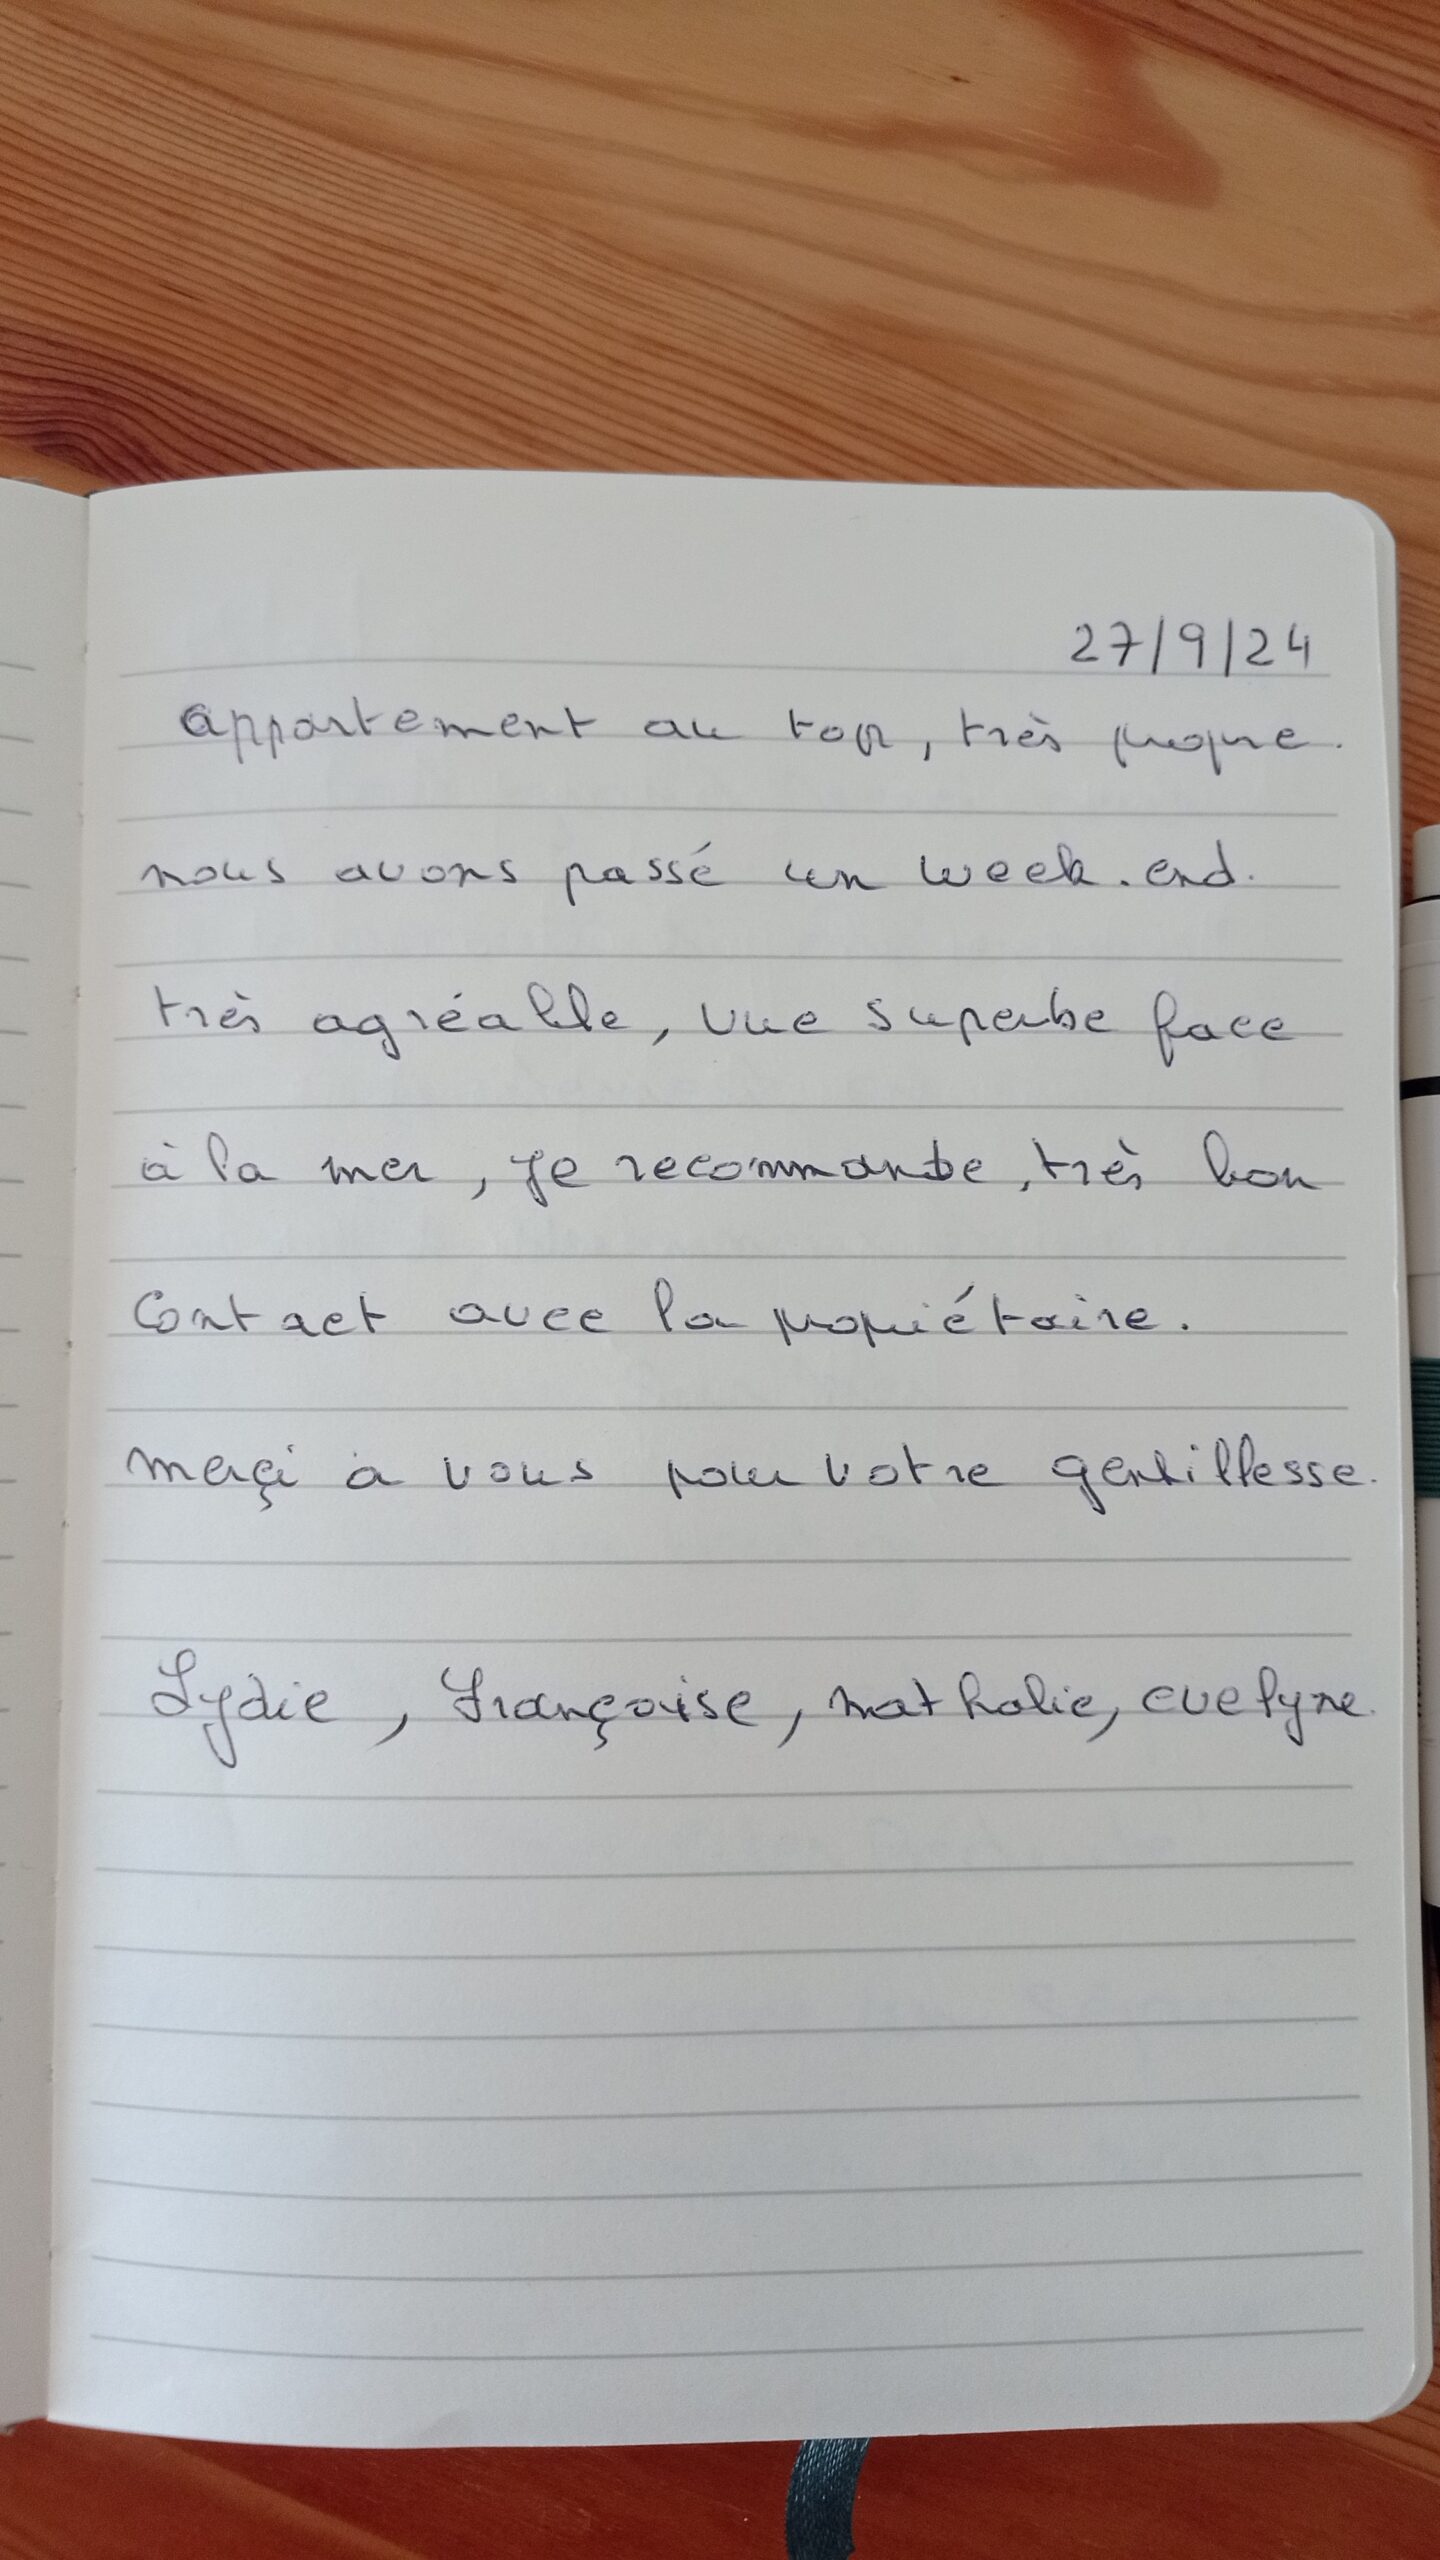 27/9/24
appartement au top, très propre.
nous avons passé un week.end.
très agréable, vue superbe face
à la mer, je recommande, très bon
contact avec la propiétaire.
merçi à vous pour votre gentillesse.
Lydie, Françoise, nathalie, evelyne.